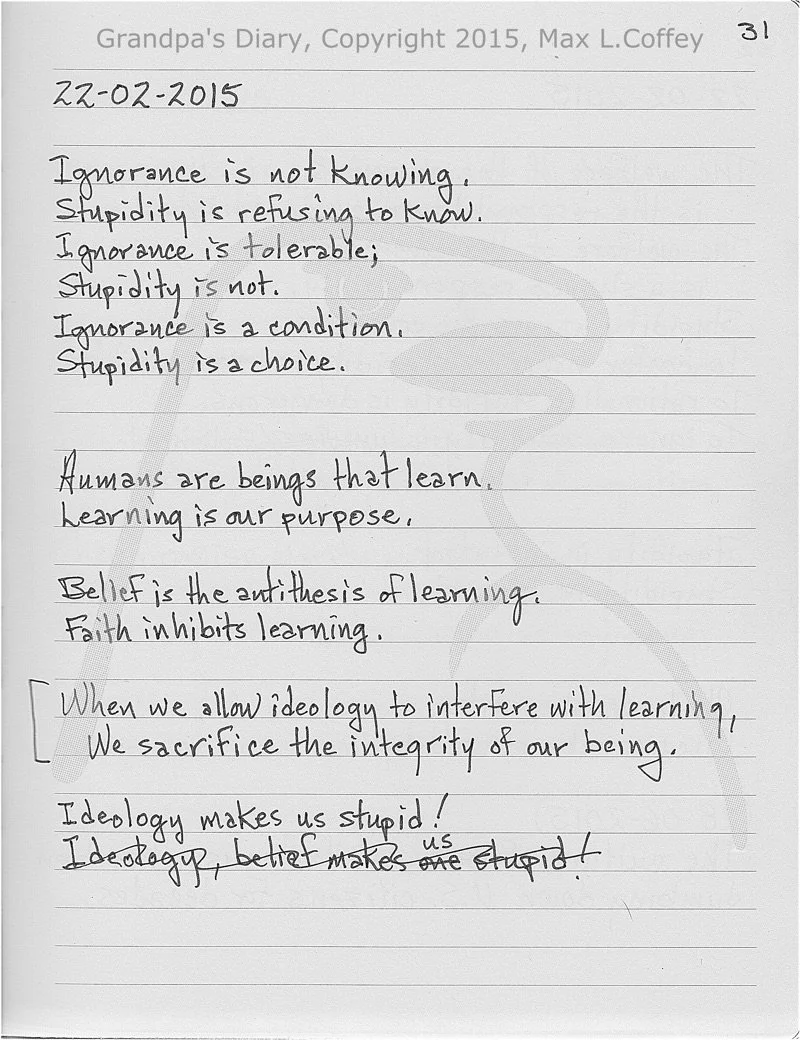 Grandpa's Diary, Copyright 2015, Max L.Coffey
31
22-02-2015
Ignorance is not knowing.
Stupidity is refusing to know.
Ignorance is tolerable;
Stupidity is not.
Ignorance is a condition.
Stupidity is a choice.
Humans are beings that learn.
Learning is our purpose.
Belief is the antithesis of learning.
Faith inhibits learning.
When we allow ideology to interfere with learning,
We sacrifice the integrity of our being.
Ideology makes us stupid!
us
Ideology, belief makes one stupid!